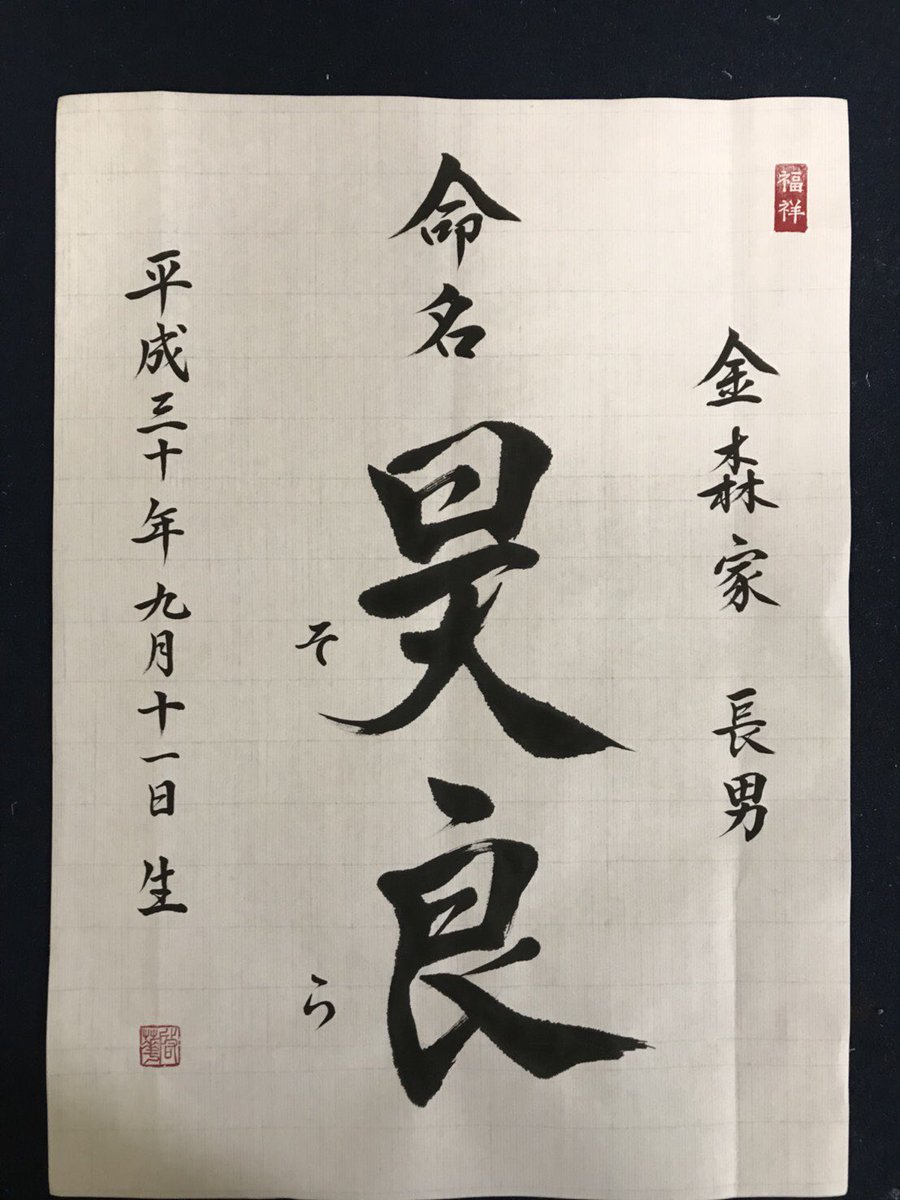 福祥
金森家 長男
命名 昊良
そら
平成三十年九月十一日 生